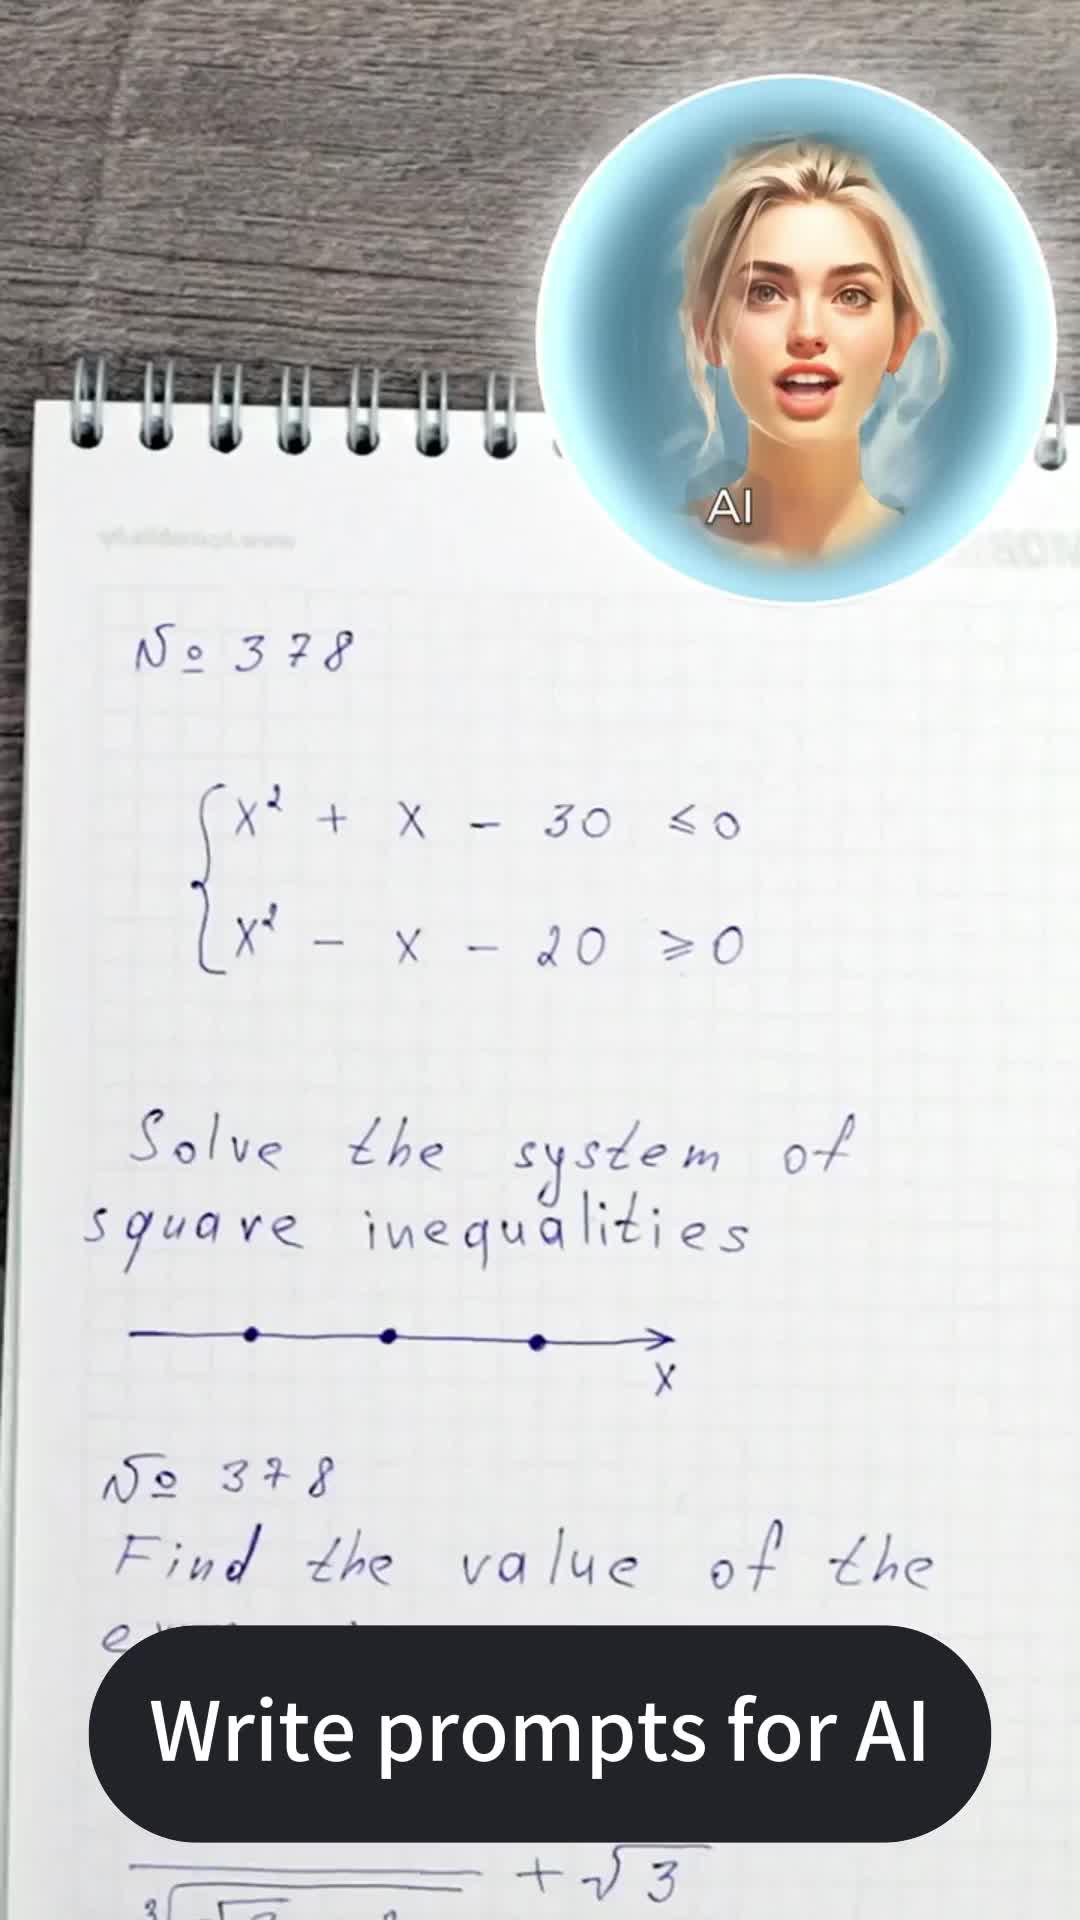 AI
№ 378
x² + x - 30 ≤ 0
x² - x - 20 ≥ 0
Solve the system of
square inequalities
x
№ 378
Find the value of the
Write prompts for AI
+ √3